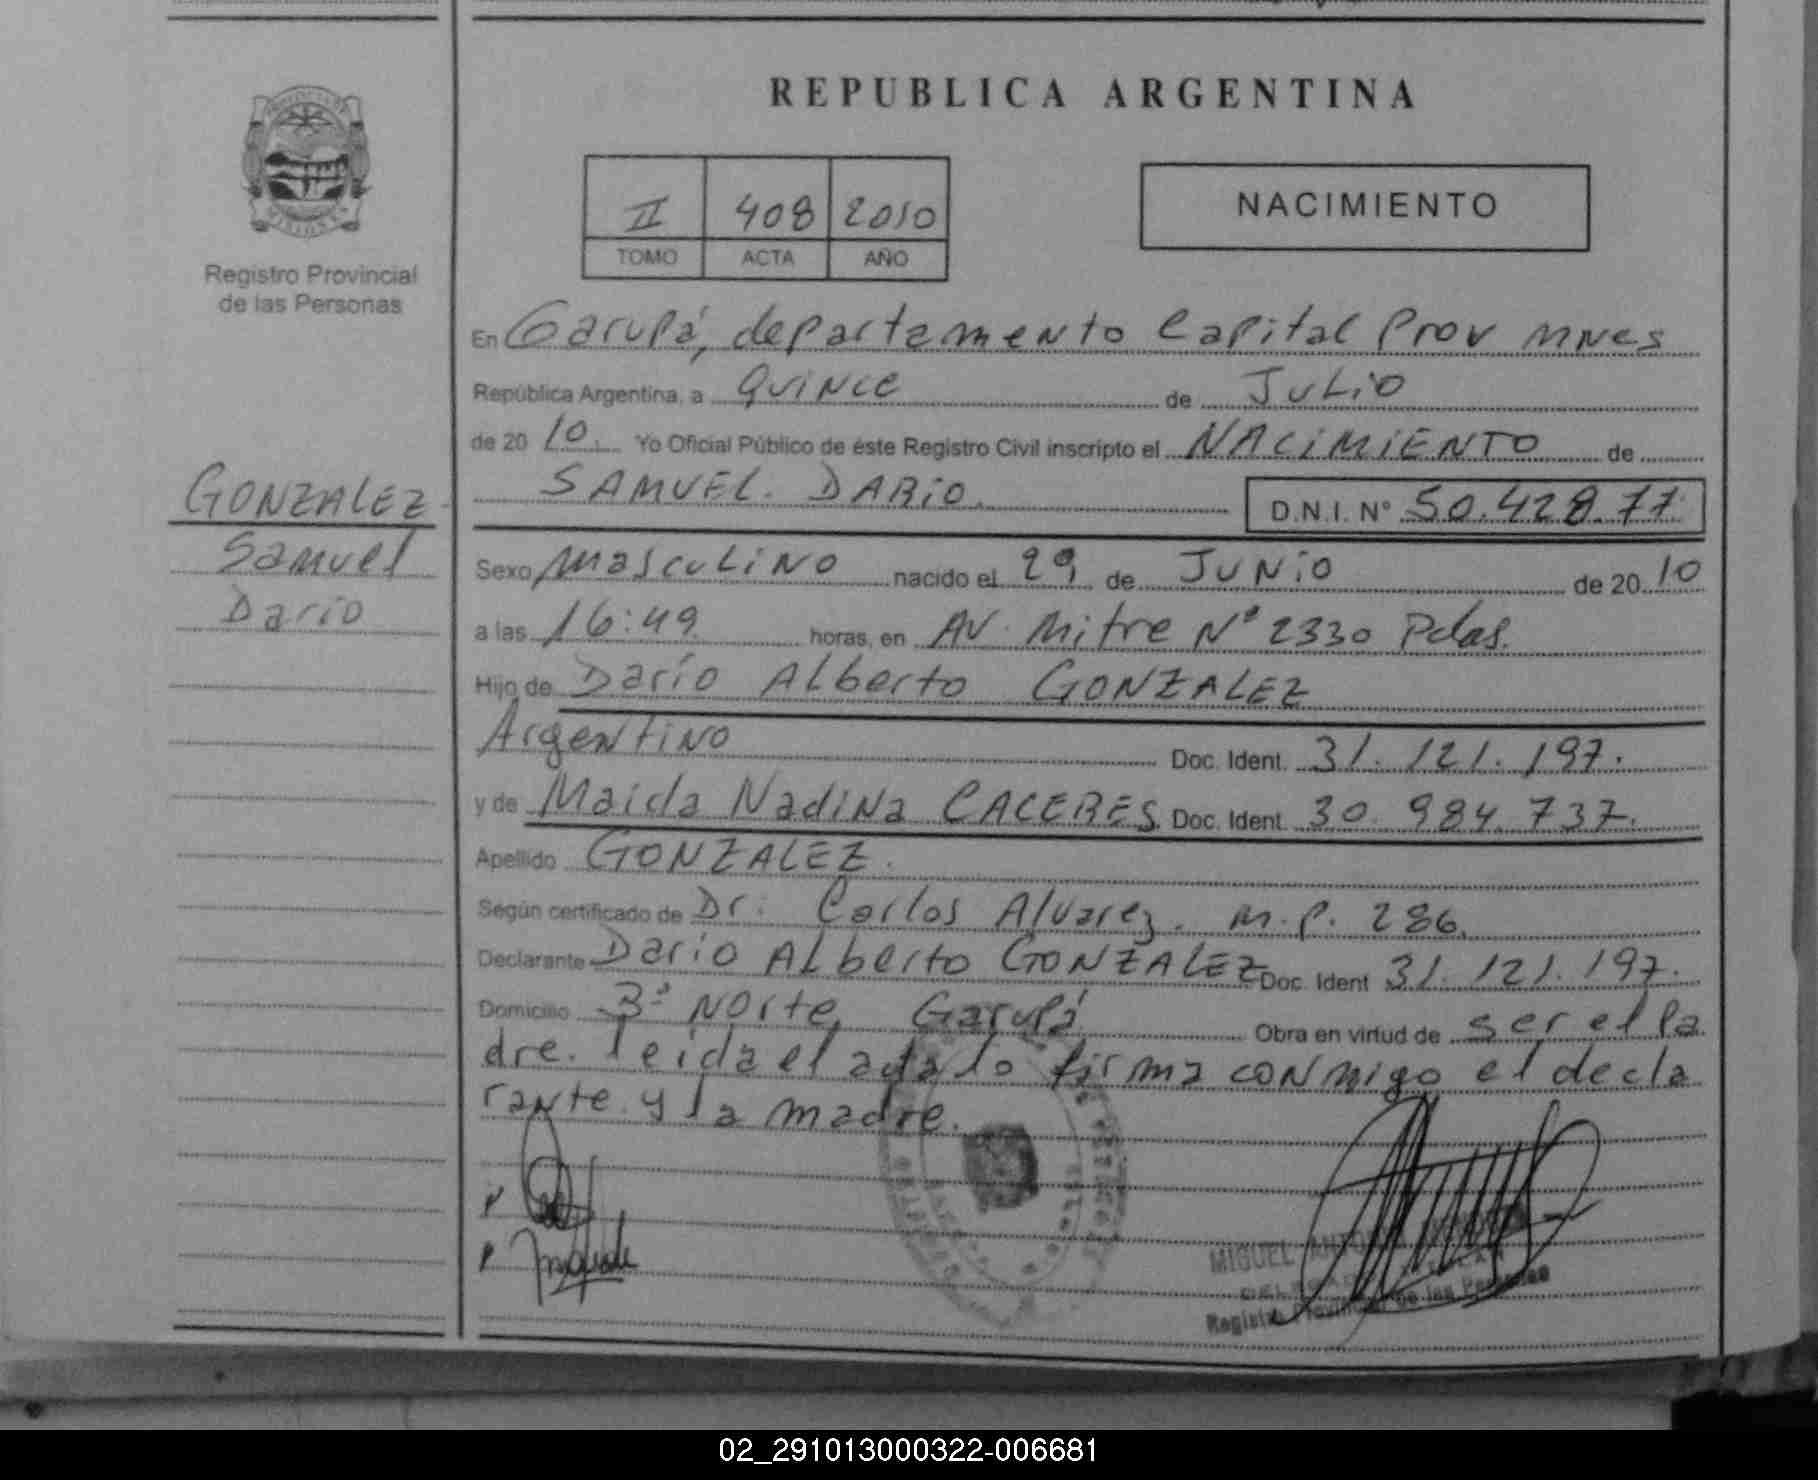 REPUBLICA ARGENTINA
II 408 2010
TOMO ACTA AÑO
NACIMIENTO
Registro Provincial
de las Personas
GONZALEZ
Samuel
Dario
En Garupá, departamento Capital Prov MNes
República Argentina, a quince de Julio
de 20 10. Yo Oficial Público de éste Registro Civil inscripto el NACIMIENTO de
SAMUEL. DARIO. D.N.I. N° 50.428.77
Sexo masculino nacido el 29 de Junio de 20 10
a las 16:49 horas, en AV. Mitre N° 2330 Pdas.
Hijo de Darío Alberto GONZALEZ
Argentino Doc. Ident. 31.121.197.
y de Maida Nadina CACERES Doc. Ident. 30.984.737.
Apellido GONZALEZ.
Según certificado de Dr. Carlos Alvarez. M.P. 286.
Declarante Dario Alberto GONZALEZ Doc. Ident 31.121.197.
Domicilio 3ª Norte Garupá Obra en virtud de ser el pa
dre. leida el acta lo firma conmigo el decla
rante y la madre.
MIGUEL
Registro Provincial de las Personas
02_291013000322-006681